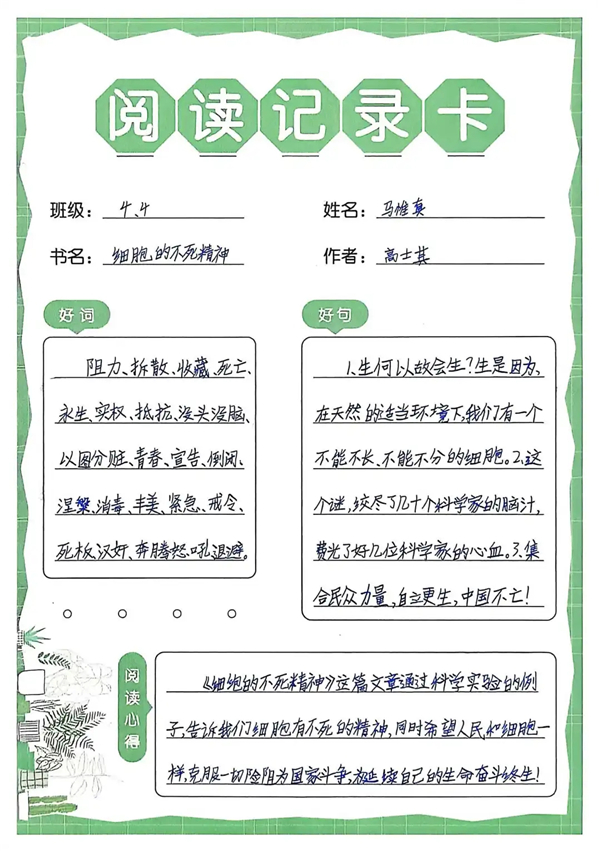 阅读记录卡
班级： 4、4 姓名： 马惟真
书名： 细胞的不死精神 作者： 高士其
好词
阻力、拆散、收藏、死亡、
永生、实权、抵抗、没头没脑、
以图分赃、青春、宣告、倒闭、
涅槃、消毒、丰美、紧急、戒令、
死板、汉奸、奔腾怒吼、退避。
好句
1、生何以故会生？生是因为，
在天然的适当环境下，我们有一个
不能不长、不能不分的细胞。2、这
个谜，绞尽了几十个科学家的脑汁，
费光了好几位科学家的心血。3、集
合民众力量，自立更生，中国不亡！
阅读心得
《细胞的不死精神》这篇文章通过科学实验的例
子，告诉我们细胞有不死的精神，同时希望人民，和细胞一
样，克服一切险阻为国家斗争，为延续自己的生命奋斗终生！